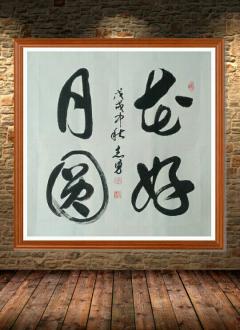 花好
月圆
戊戌中秋 志勇